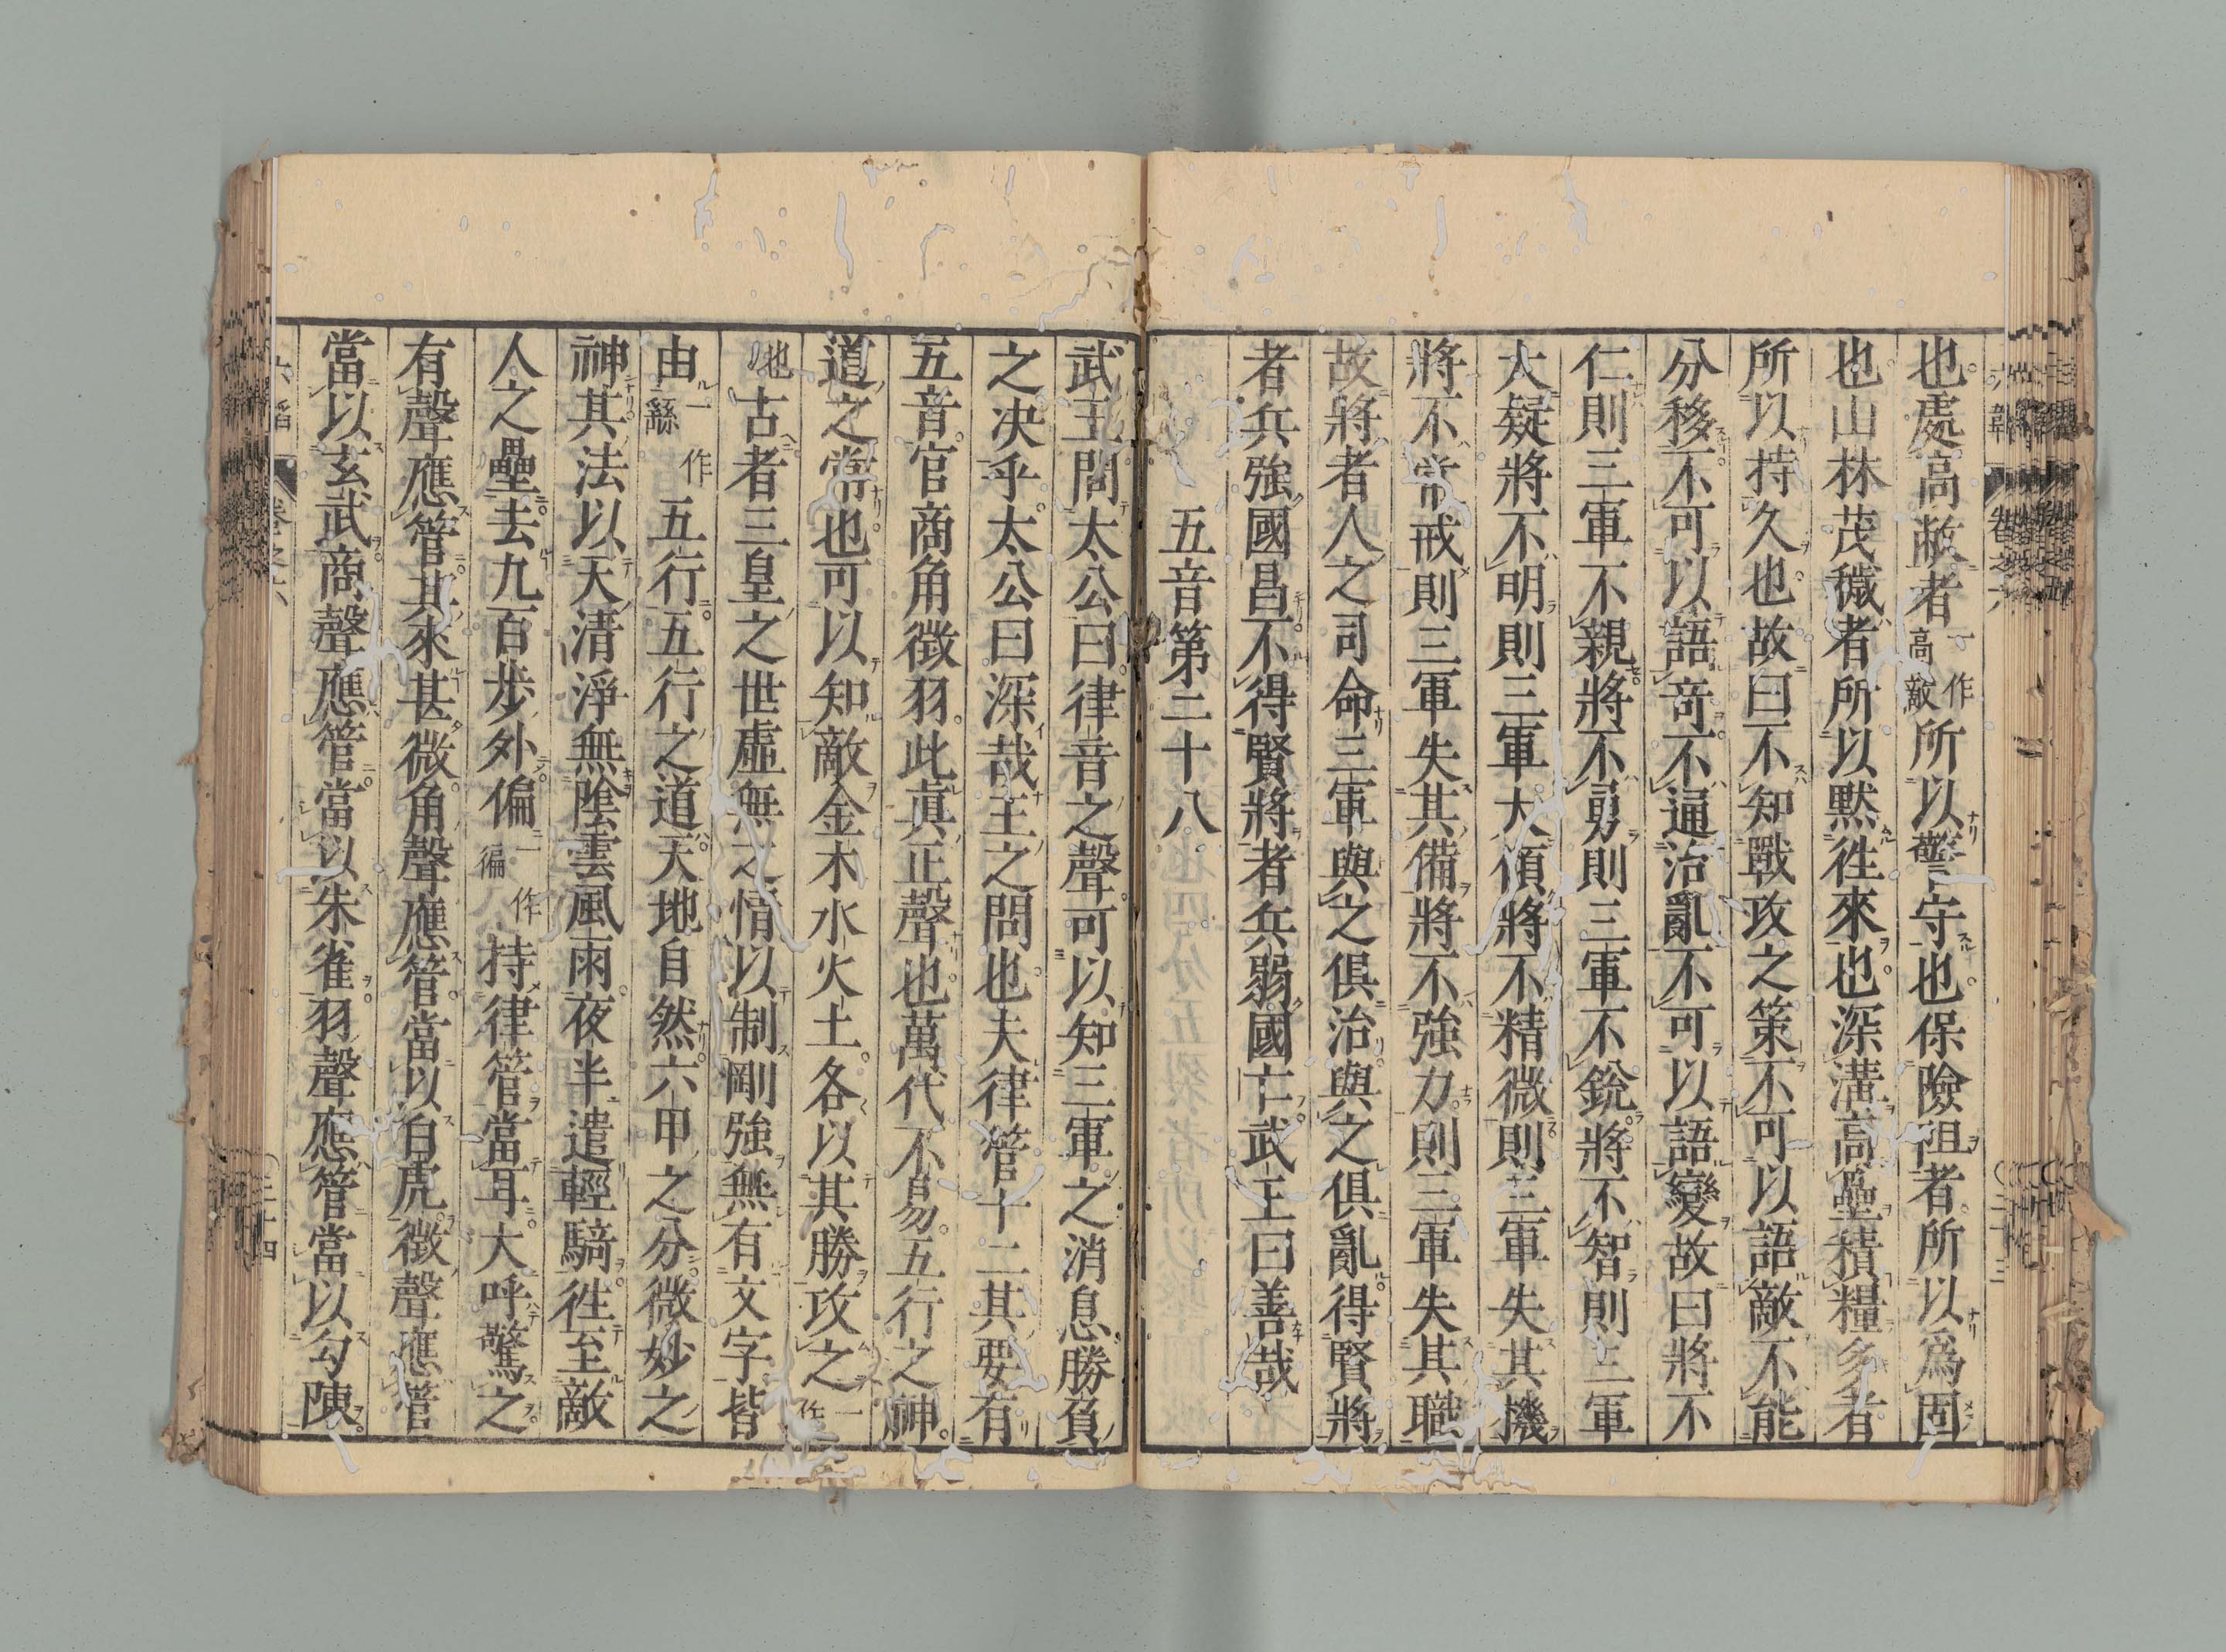 也處高敞者一作高敵所以警守也保險阻者所以爲固
也山林茂穢者所以黙徃來也深溝高壘積糧多者
所以持久也故曰不知戰攻之策不可以語敵不能
分移不可以語竒不通治亂不可以語變故曰將不
仁則三軍不親將不勇則三軍不銳將不智則三軍
大疑將不明則三軍大傾將不精微則三軍失其機
將不常戒則三軍失其備將不強力則三軍失其職
故將者人之司命三軍與之俱治與之俱亂得賢將
者兵強國昌不得賢將者兵弱國亡武王曰善哉
五音第二十八
武王問太公曰律音之聲可以知三軍之消息勝負
之决乎太公曰深哉王之問也夫律管十二其要有
五音宮商角徴羽此眞正聲也萬代不易五行之神
道之常也可以知敵金木水火土各以其勝攻之一作
也古者三皇之世虛無之情以制剛強無有文字皆
由一作繇五行五行之道天地自然六甲之分微妙之
神其法以天清淨無陰雲風雨夜半遣輕騎徃至敵
人之壘去九百步外偏一作徧持律管當耳大呼驚之
有聲應管其來甚微角聲應管當以白虎徴聲應管
當以玄武商聲應管當以朱雀羽聲應管當以勾陳
六韜 卷之六 二十四
卷之六 二十三